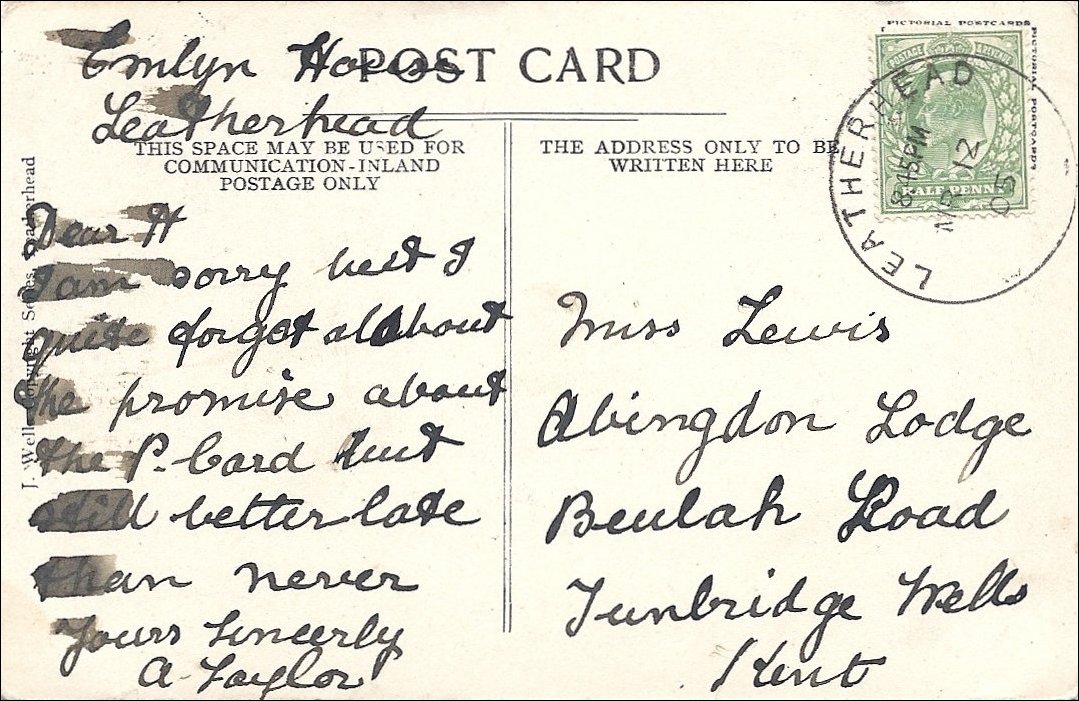 Emlyn House
Leatherhead
POST CARD
THIS SPACE MAY BE USED FOR
COMMUNICATION-INLAND
POSTAGE ONLY
THE ADDRESS ONLY TO BE
WRITTEN HERE
Dear H
I am sorry but I
quite forgot all about
the promise about
the P. Card but
still better late
than never
Yours Sincerly
A. Taylor
Miss Lewis
Abingdon Lodge
Beulah Road
Tunbridge Wells
Kent
PICTORIAL POSTCARDS
PICTORIAL POSTCARDS
POSTAGE & REVENUE
HALF PENNY
LEATHERHEAD
8.45PM
MR 12
05
J. Well Copyright Series, Leatherhead